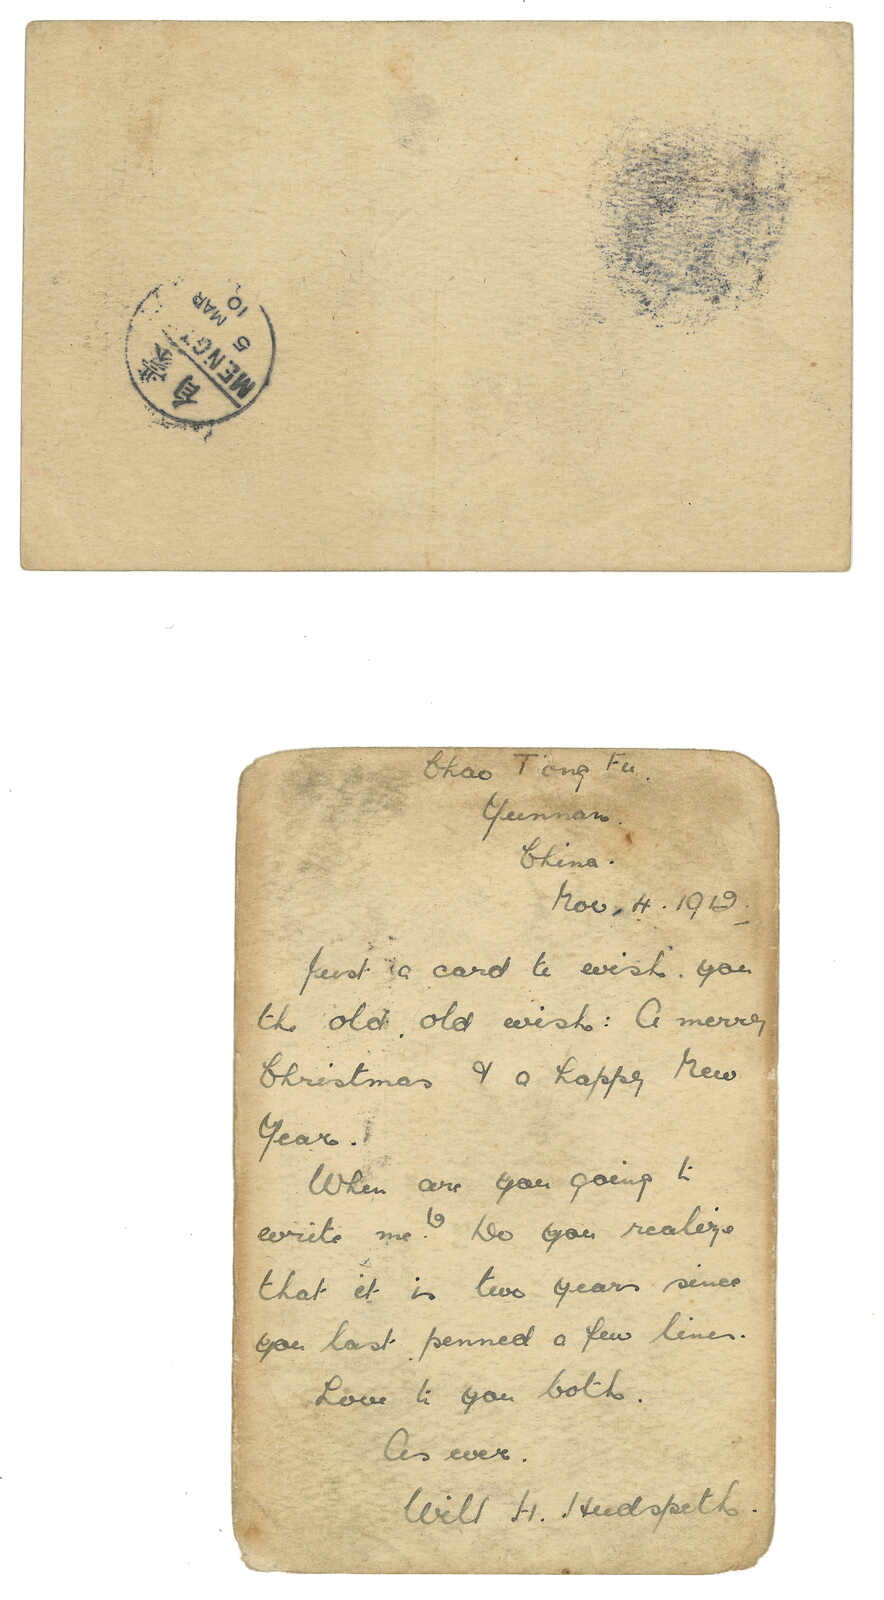 蒙自
MENGT
5
MAR
10
Chao T'ong Fu.
Yunnan.
China.
Nov. 4. 1912.
Just a card to wish you
the old, old wish: A merry
Christmas & a happy New
Year.!
When are you going to
write me? Do you realize
that it is two years since
you last penned a few lines.
Love to you both.
As ever.
Will H. Hudspeth.